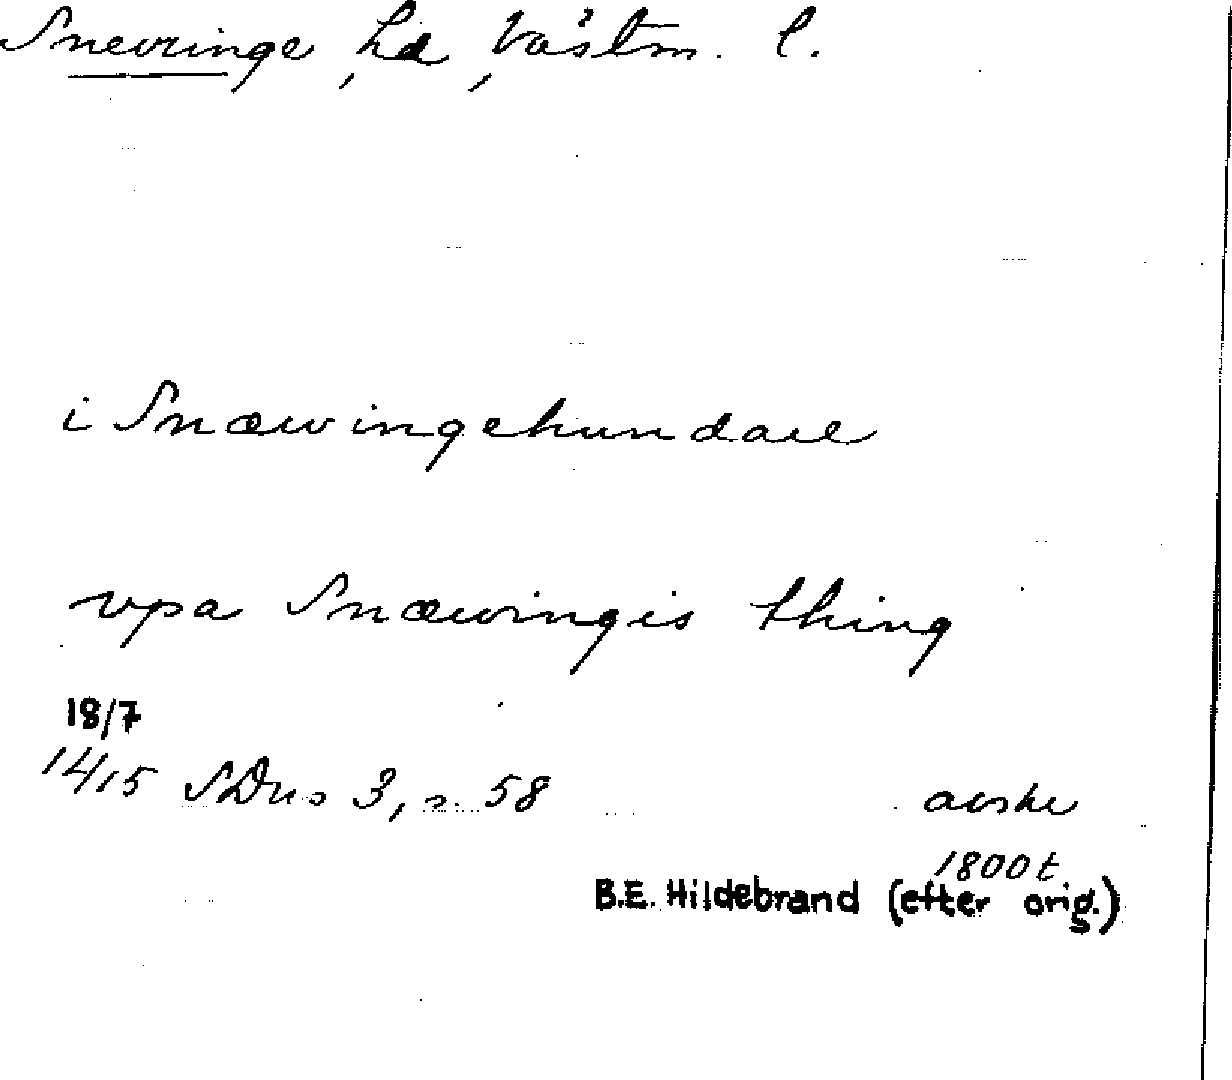 Snevringe, hd, Västm. l.
i Snæwingehundare
vpa Snæwingis thing
18/7
1415 SDns 3, s. 58 avskr
1800 t
B.E. Hildebrand (efter orig.)